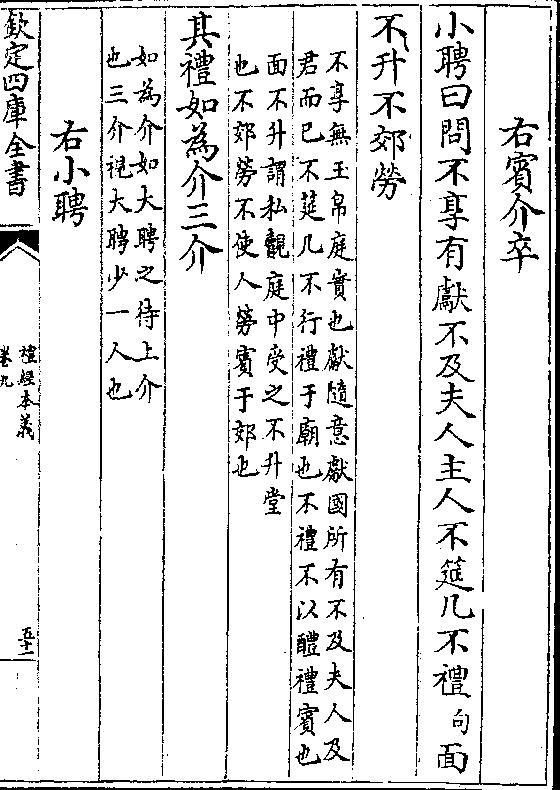 右賓介卒
小聘曰問不享有獻不及夫人主人不筵几不禮句面
不升不郊勞
不享無玉帛庭實也獻隨意獻國所有不及夫人及
君而已不筵几不行禮于廟也不禮不以醴禮賓也
面不升謂私覿庭中受之不升堂
也不郊勞不使人勞賓于郊也
其禮如為介三介
如為介如大聘之待上介
也三介視大聘少一人也
右小聘
欽定四庫全書
禮經本義
卷九
五十一